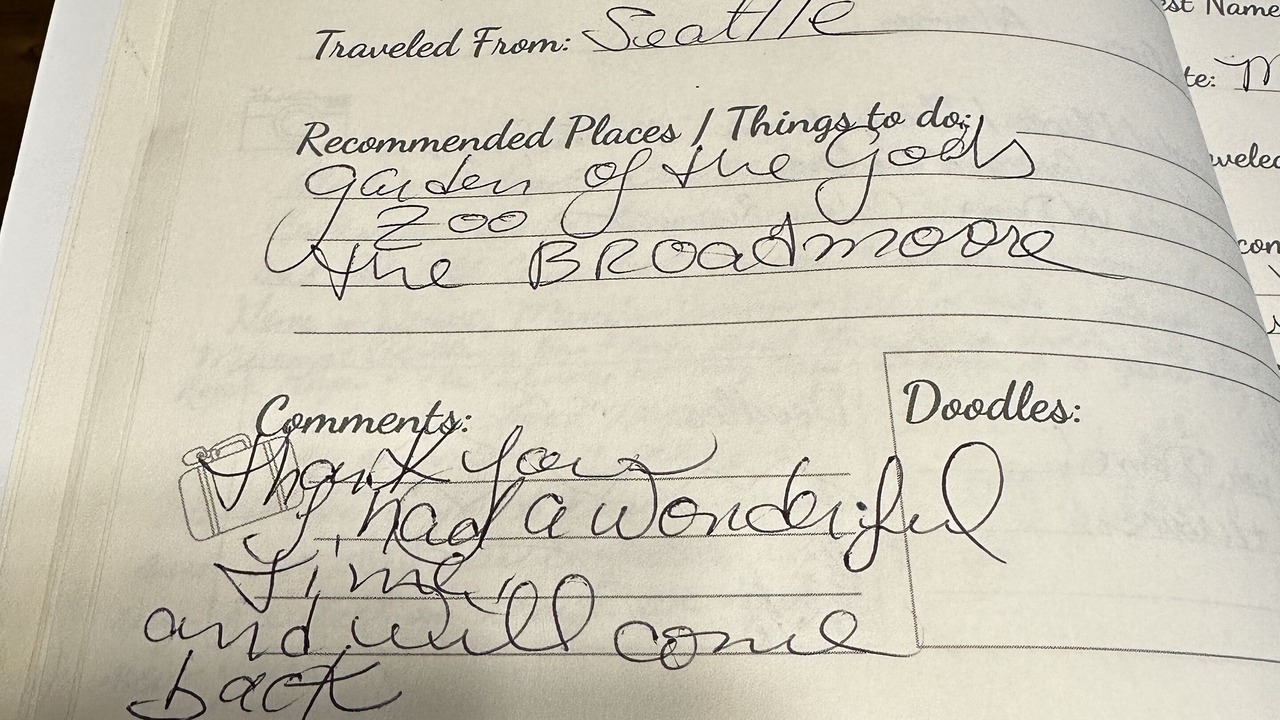 Traveled From: Seattle
Recommended Places / Things to do:
garden of the Gods
Zoo
the BROadmoore
Comments:
Thank you
I had a wonderful
time,
and will come
back
Doodles:
est Name
te: M
veled